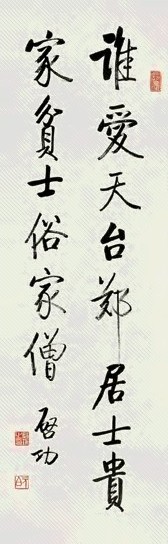 誰愛天台鄭居士貴
家貧士俗家僧
啓功